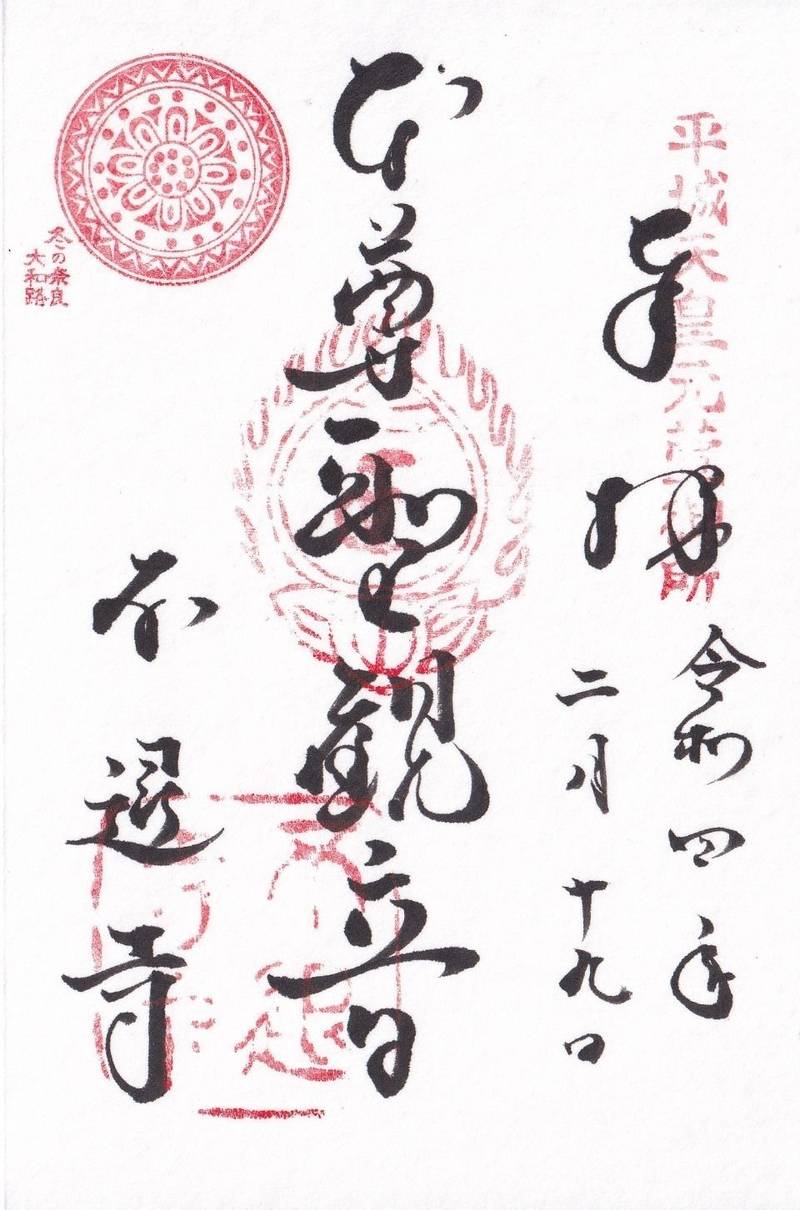 平城天皇元萱御所
奉拝
令和四年
二月十九日
本尊聖観音
不退寺
冬の奈良
大和路